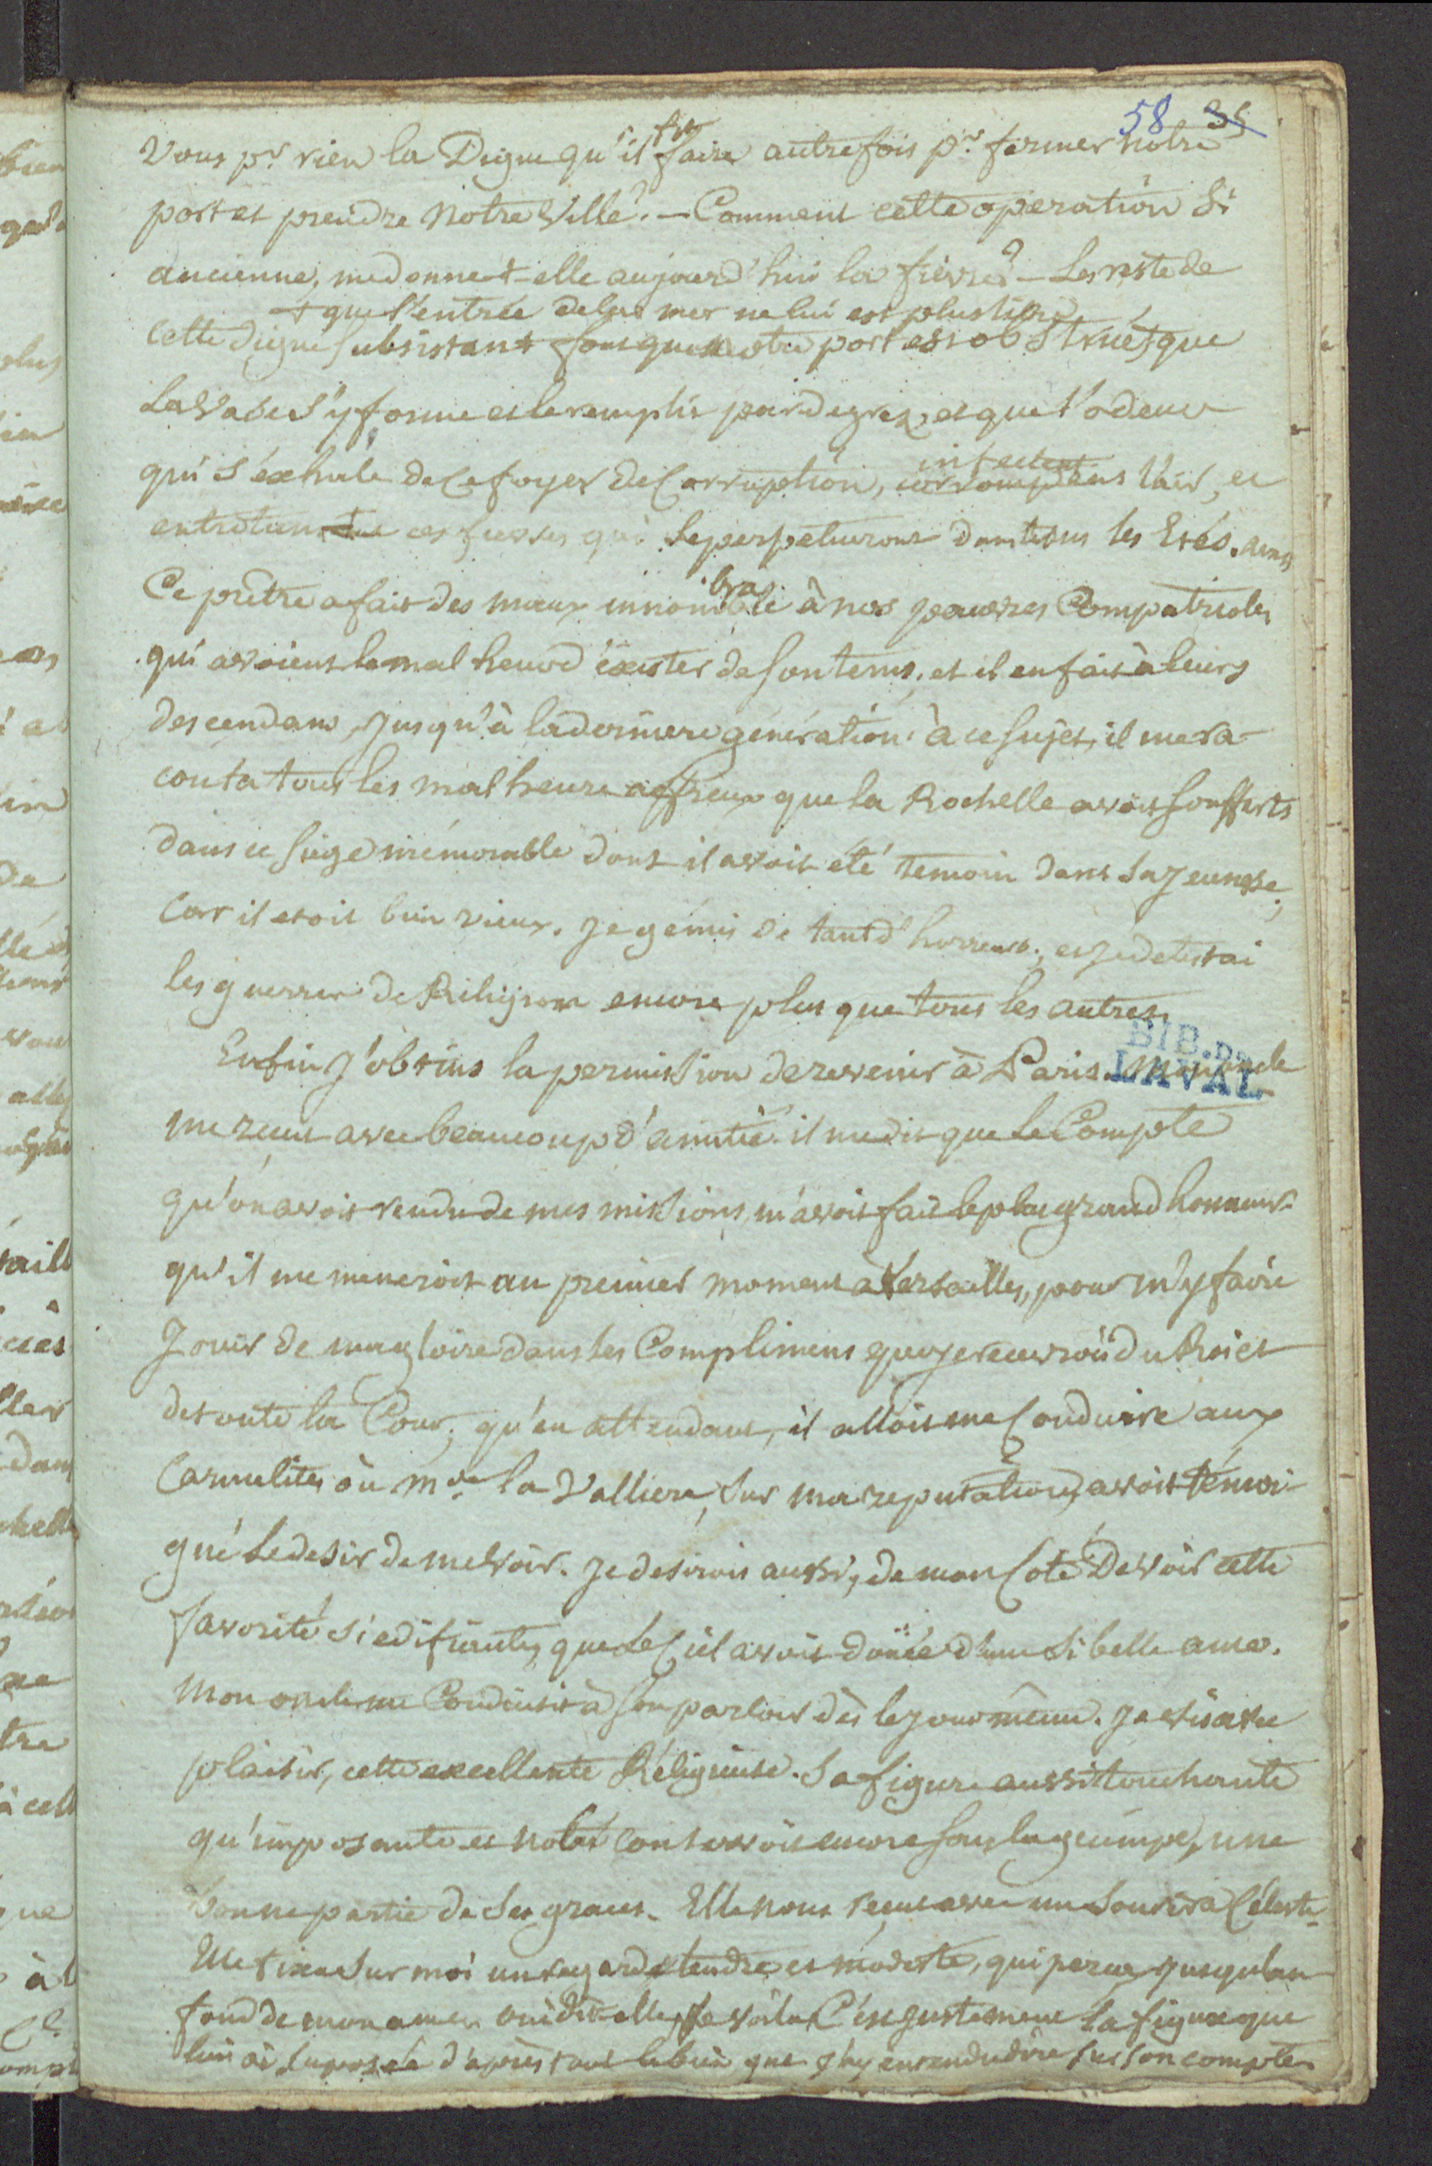 58 35
Vous pr. rien la Digue qu'il fit faire autrefois pr. fermer notre
port et prendre notre Ville? — Comment cette operation si
ancienne, me donne t-elle aujourd'hui la fievre? — Les reste de
+ que l'entrée de la mer ne lui est plus libre
cette digue subsistant font que notre port est obstrué + que
la Vase s'y forme et le remplit par degrez, et que l'odeur
infectent
qui s'éxhale de ce foyer de Corruption, corrompans l'air, et
entretien ces fievres qui se perpetueront dans tous les Etés. ainsi
bra
Ce prêtre a fait des maux innomble à nos pauvres Compatriotes
qui avoient le malheur d'éxister de son tems, et il en fait à leurs
descendans, jusqu'à la derniere génération. à ce sujet, il me ra-
conta tous les malheurs affreux que la Rochelle avoit soufferts
dans ce siège mémorable dont il avoit été temoin dans sa jeunesse,
Car il etoit bien vieux. je gémis de tant d'horreurs, et je detestai
les guerres de Réligion encore plus que tous les autres.
Enfin j'obtins la permission de revenir à Paris. Mon oncle
BIB. DE
LAVAL
me recut avec beaucoup d'amitié. il me dit que le Compte
qu'on avoit rendu de mes missions, m'avoit fait le plus grand honneur
qu'il me meneroit au premier moment à Versailles, pour m'y faire
Jouir de ma gloire dans les Complimens que je recevrois du Roi et
de toute la Cour; qu'en attendant, il alloit me Conduire aux
Carmelites où Mde la Valliere, sur ma reputation, avoit témoi-
gné le desir de me voir. je desirois aussi, de mon Coté De voir cette
favorite si edifiante, que le Ciel avoit douée d'une si belle ame.
Mon oncle me Conduisit à son parloir dès le jour même. je vis avec
plaisir, cette excellente Réligieuse. Sa figure aussi touchante
qu'imposante et noble conservoit encore sous la guimpe, une
bonne partie de ses graces. Elle nous reçut avec un sourire Céleste.
Elle fixa sur moi un regard tendre et modeste, qui perça jusqu'au
fond de mon ame. oui dit-elle, le voila, C'est justement la figure que
lui ai suposée d'après tout le bien que j'ay entendu dire sur son compte.